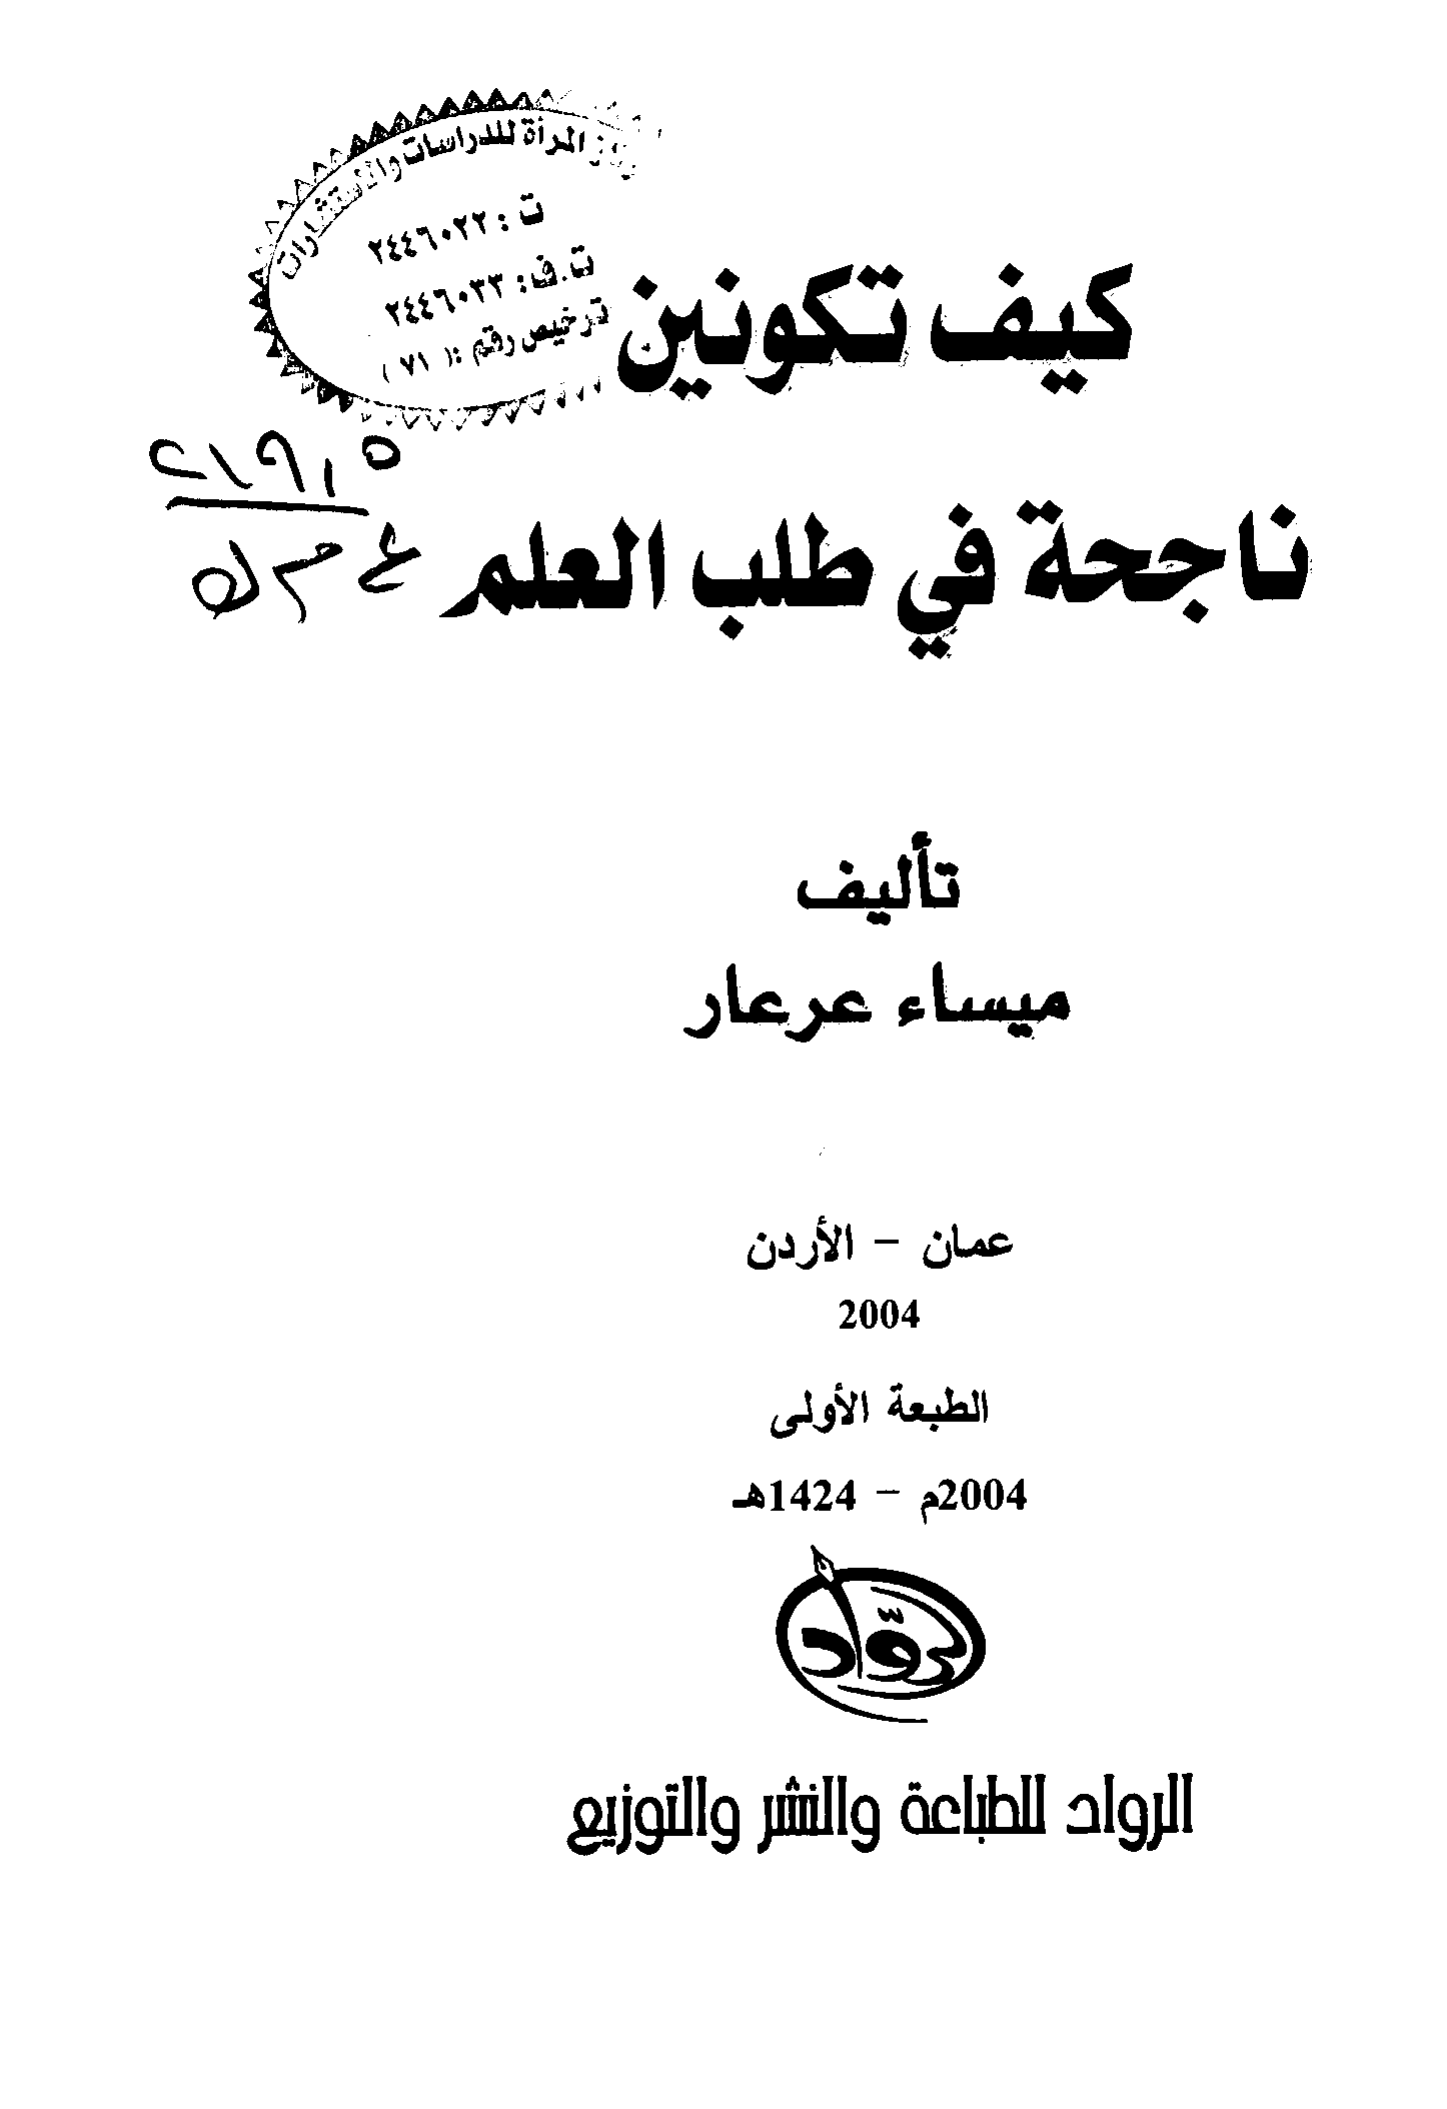 المرأة للدراسات والاستشارات
ت : ٢٤٤٦٠٢٢
ت.ف: ٢٤٤٦٠٣٣
ترخيص رقم :( ٧١ )
كيف تكونين
ناجحة في طلب العلم
تأليف
ميساء عرعار
عمان - الأردن
2004
الطبعة الأولى
2004م - 1424هـ
رواد
الرواد للطباعة والنشر والتوزيع